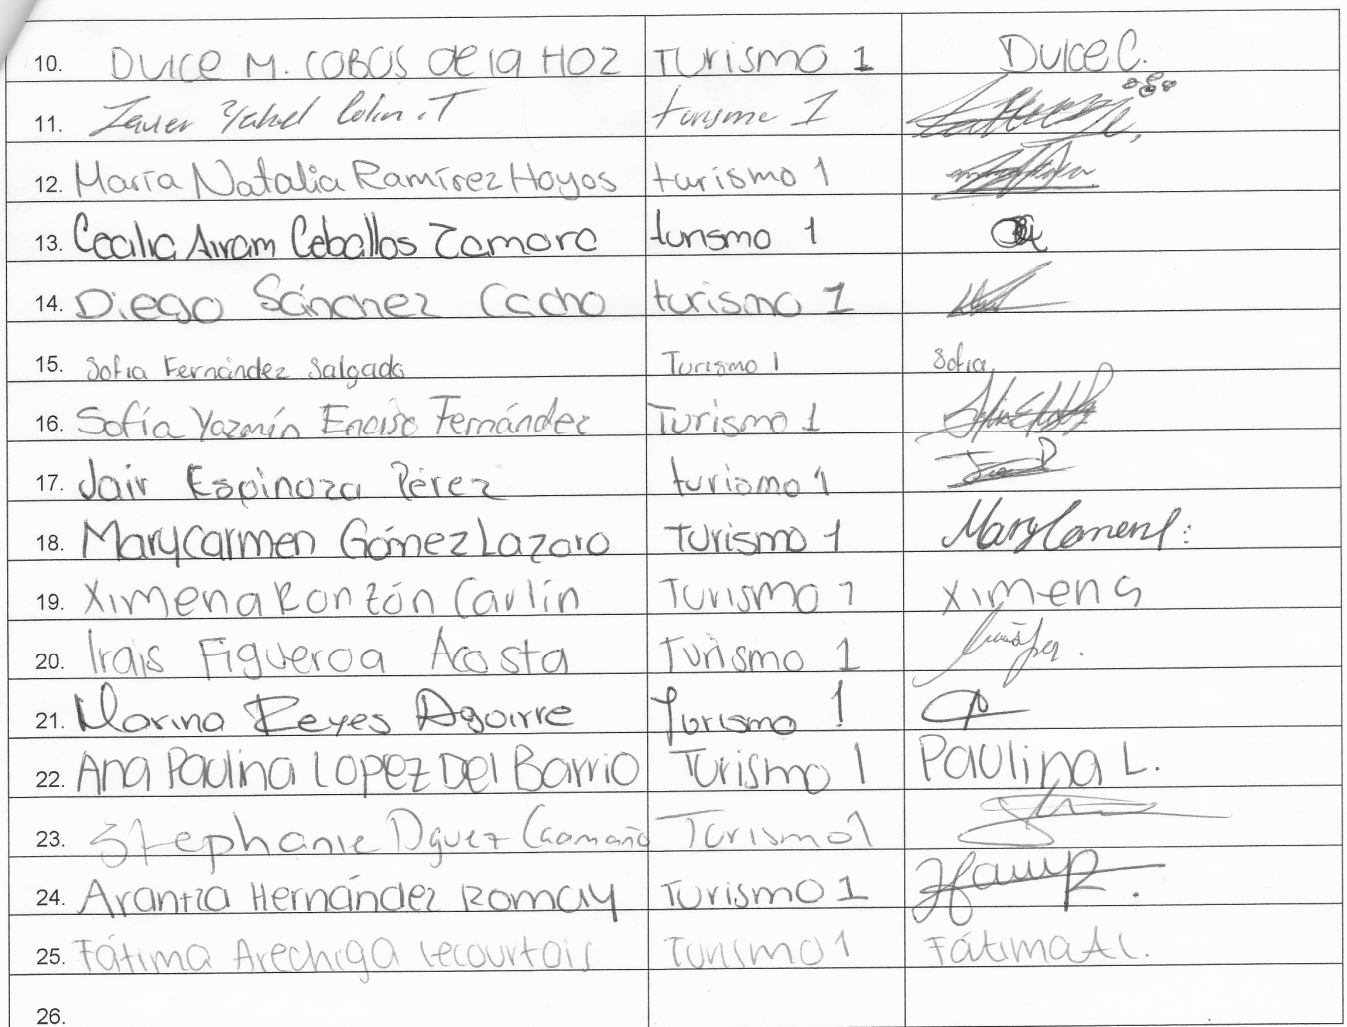 10. Dulce M. Cobos de la Hoz Turismo 1 Dulce C.
11. Turismo 1
12. María Natalia Ramírez Hoyos turismo 1
13. Cecilia Airam Ceballos Zamora turismo 1
14. Diego Sánchez Cacho turismo 1
15. Sofia Fernández Salgado Turismo 1 Sofia
16. Sofía Yazmín Enciso Fernández Turismo 1
17. Jair Espinoza Pérez turismo 1
18. Marycarmen Gómez Lazaro turismo 1
19. Ximena Ronzón Carlín Turismo 1 Ximena
20. Irais Figueroa Acosta Turismo 1
21. Marina Reyes Aguirre Turismo 1
22. Ana Paulina Lopez Del Barrio Turismo 1 Paulina L.
23. Stephanie Dguez Caamaño Turismo 1
24. Arantza Hernández Romay Turismo 1
25. Fátima Arechiga Lecourtois Turismo 1 Fátima AL.
26.